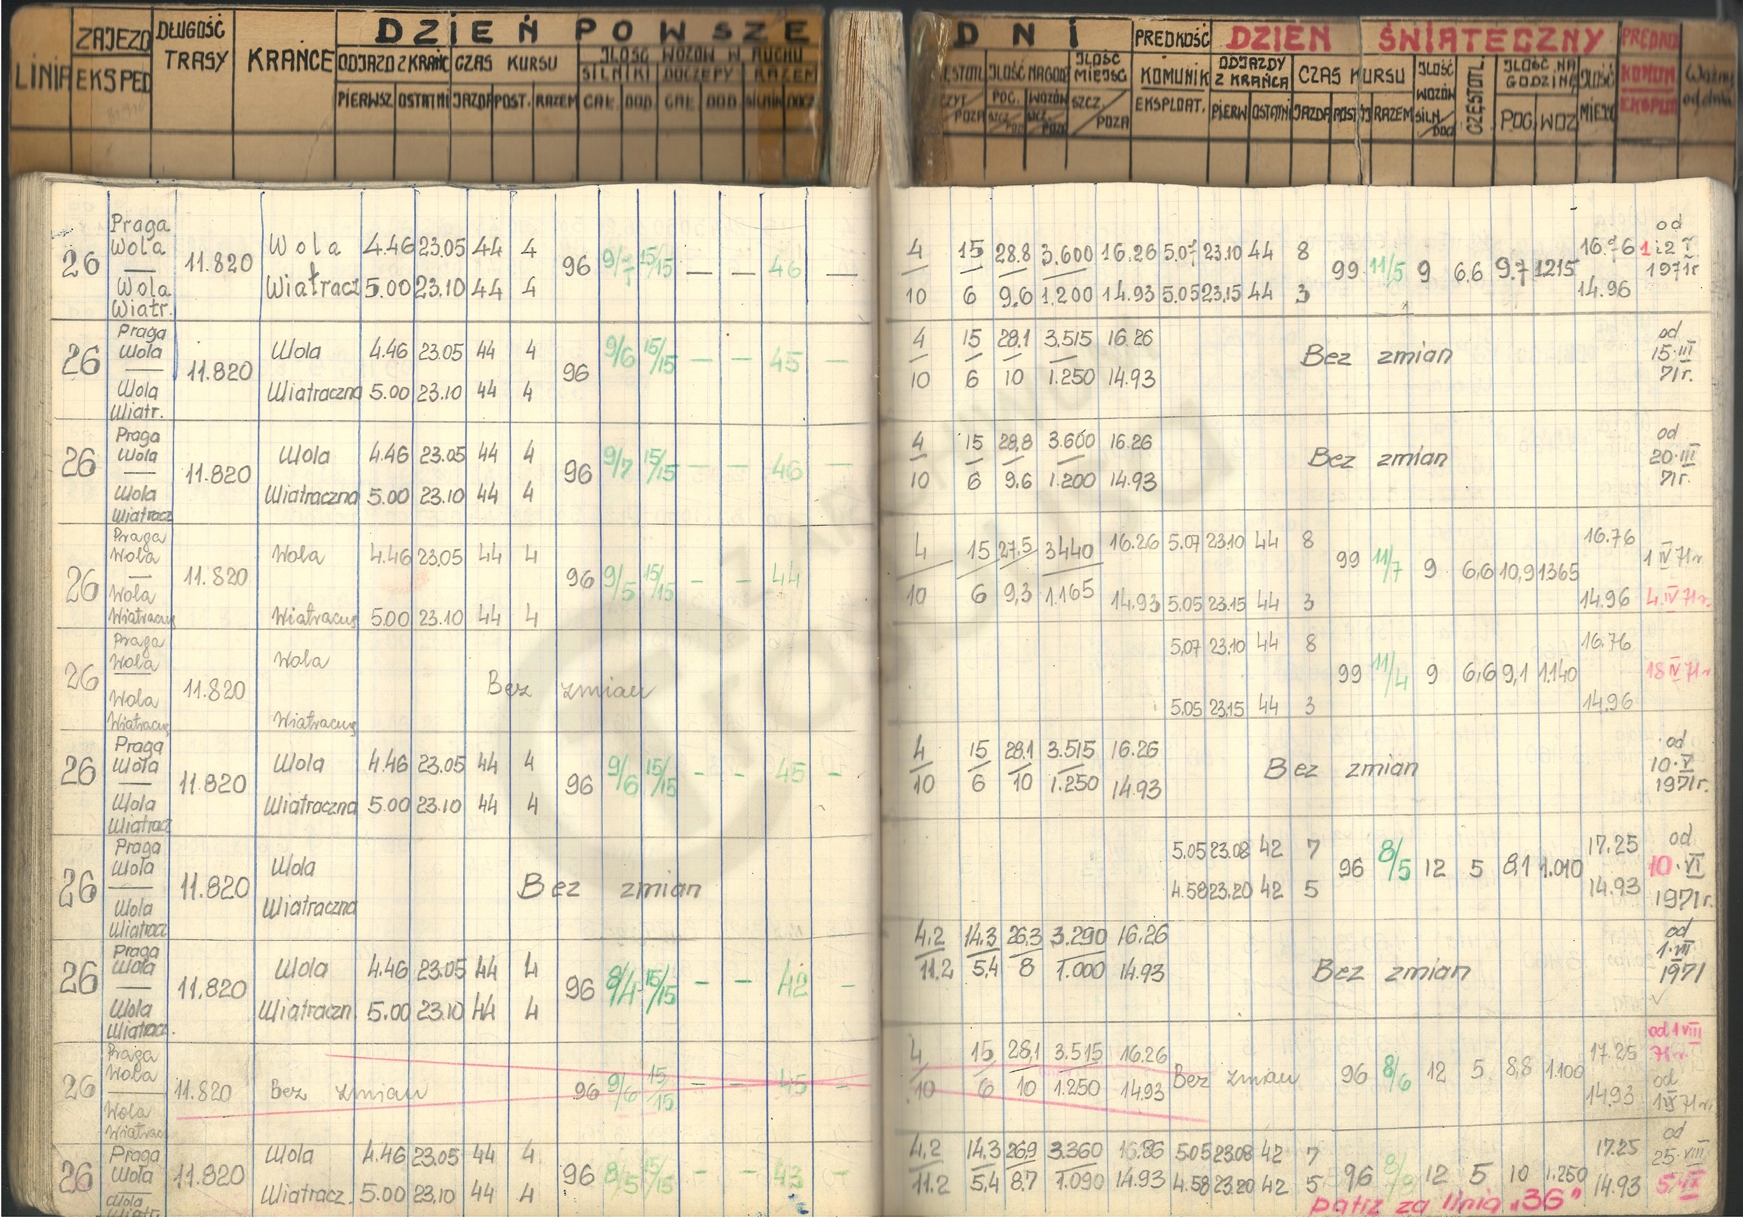 LINIA ZAJEZD EKSPED DŁUGOŚĆ TRASY KRAŃCE DZIEŃ POWSZE DNI PRĘDKOŚĆ DZIEŃ ŚWIĄTECZNY
ODJAZD Z KRAŃC CZAS KURSU ILOŚĆ WOZÓW W RUCHU ILOŚĆ NA GODZ ILOŚĆ MIEJSC KOMUNIK EKSPLOAT. ODJAZDY Z KRAŃCA CZAS KURSU ILOŚĆ WOZÓW CZĘSTOTL. ILOŚĆ NA GODZINĘ
SILNIKI DOCZEPY RAZEM
PIERWSZ OSTATNI JAZDA POST. RAZEM CAŁ. DOD. CAŁ. DOD. POC. WOZÓW PIERW OSTATNI JAZDA RAZEM POC. WOZ
26 Praga Wola — Wola Wiatr. 11.820
Wola 4.46 23.05 44 4 96 15/15 — — 46 — 4 15 28.8 3.600 16.26 5.07 23.10 44 8 99 11/5 9 6,6 9.7 1215 od 1971r
Wiatracz 5.00 23.10 44 4 10 6 9.6 1.200 14.93 5.05 23.15 44 3 14.96
26 Praga Wola — Wola Wiatr. 11.820
Wola 4.46 23.05 44 4 96 9/6 15/15 — — 45 — 4 15 28,1 3.515 16.26 Bez zmian od 15.III 71r.
Wiatraczna 5.00 23.10 44 4 10 6 10 1.250 14.93
26 Praga Wola — Wola Wiatracz 11.820
Wola 4.46 23.05 44 4 96 9/7 15/15 — — 46 — 4 15 28,8 3.600 16.26 Bez zmian od 20.III 71r.
Wiatraczna 5.00 23.10 44 4 10 6 9.6 1.200 14.93
26 Praga Wola — Wola Wiatracz 11.820
Wola 4.46 23.05 44 4 96 9/5 15/15 - - 44 4 15 27,5 3440 16.26 5.07 23.10 44 8 99 11/7 9 6,6 10,9 1365 16.76 1 IV 71r.
Wiatraczn 5.00 23.10 44 4 10 6 9,3 1.165 14.93 5.05 23.15 44 3 14.96 4.IV 71r.
26 Praga Wola — Wola Wiatraczn 11.820
Wola Bez zmian 5,07 23.10 44 8 99 11/4 9 6,6 9,1 1.140 16.76 18 IV 71r
Wiatraczn 5.05 23.15 44 3 14.96
26 Praga Wola — Wola Wiatracz 11.820
Wola 4.46 23.05 44 4 96 9/6 15/15 - - 45 - 4 15 28,1 3.515 16.26 Bez zmian od 10.V 1971r.
Wiatraczna 5.00 23.10 44 4 10 6 10 1.250 14.93
26 Praga Wola — Wola Wiatracz 11.820
Wola Bez zmian 5.05 23.08 42 7 96 8/5 12 5 8,1 1.010 17.25 od 10.VI 1971r.
Wiatraczna 4.58 23.20 42 5 14.93
26 Praga Wola — Wola Wiatracz. 11.820
Wola 4.46 23.05 44 4 96 8/4 15/15 - - 42 - 4,2 14,3 26,3 3.290 16.26 Bez zmian od 1.VII 1971
Wiatraczn 5.00 23.10 44 4 11.2 5,4 8 1.000 14.93
26 Praga Wola — Wola Wiatrac 11.820
Bez zmian 96 9/6 15/15 - - 45 - 4 15 28,1 3.515 16.26 Bez zmian 96 8/6 12 5 8,8 1.100 17.25 od 1 VIII 71r.
10 6 10 1.250 14.93 14.93 od 1 IX 71r.
26 Praga Wola — Wola 11.820
Wola 4.46 23.05 44 4 96 8/5 15/15 - - 43 - 4,2 14,3 26,9 3.360 5.05 23.08 42 7 96 12 5 10 1.250 17.25 od 25.VIII
Wiatracz. 5.00 23.10 44 4 11.2 5,4 8.7 1.090 14.93 4.58 23.20 42 5 14.93 5.IX
patrz za linią „36”